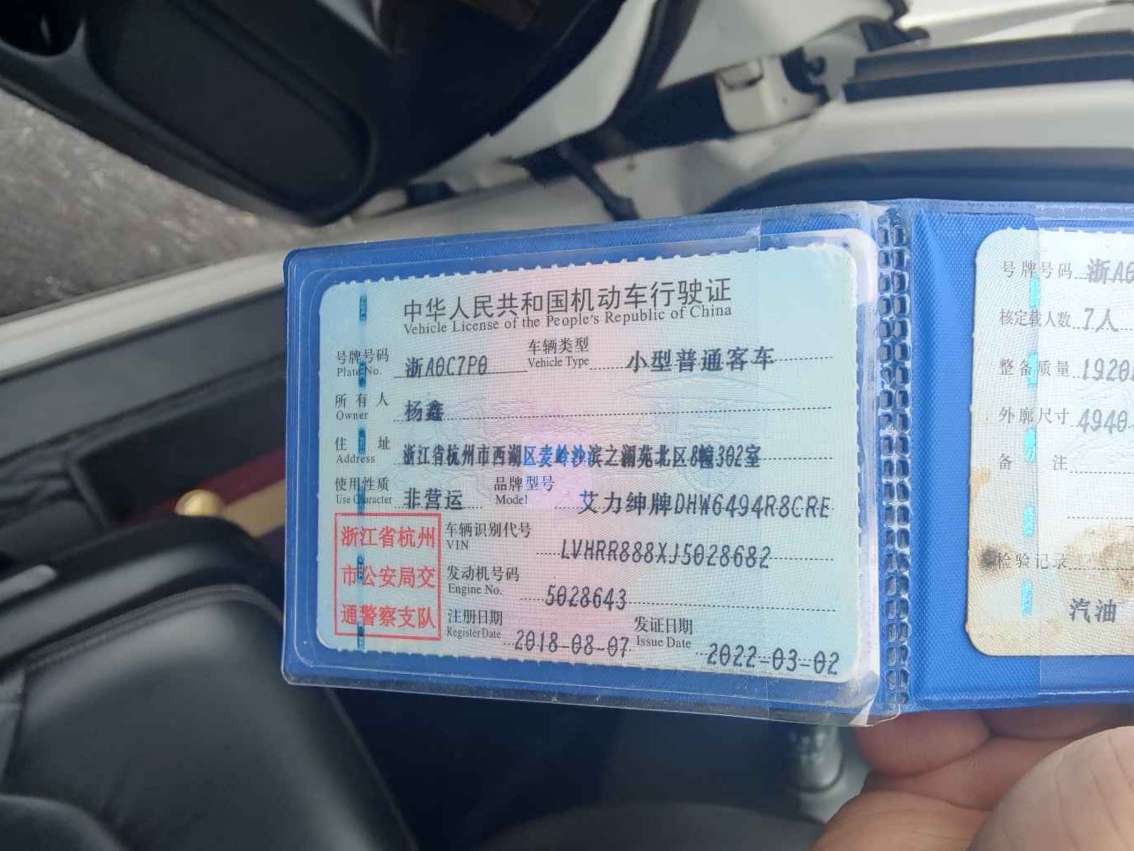 中华人民共和国机动车行驶证
Vehicle License of the People's Republic of China
号牌号码 浙A0C7P0 车辆类型 小型普通客车
Plate No. Vehicle Type
所有人 杨鑫
Owner
住址 浙江省杭州市西湖区麦岭沙滨之澜苑北区8幢302室
Address
使用性质 非营运 品牌型号 艾力绅牌DHW6494R8CRE
Use Character Model
浙江省杭州
市公安局交
通警察支队
车辆识别代号 LVHRR888XJ5028682
VIN
发动机号码 5028643
Engine No.
注册日期 2018-08-07 发证日期 2022-03-02
Register Date Issue Date
号牌号码 浙A0
核定载人数 7人
整备质量 1920
外廓尺寸 4940
备注
检验记录
汽油